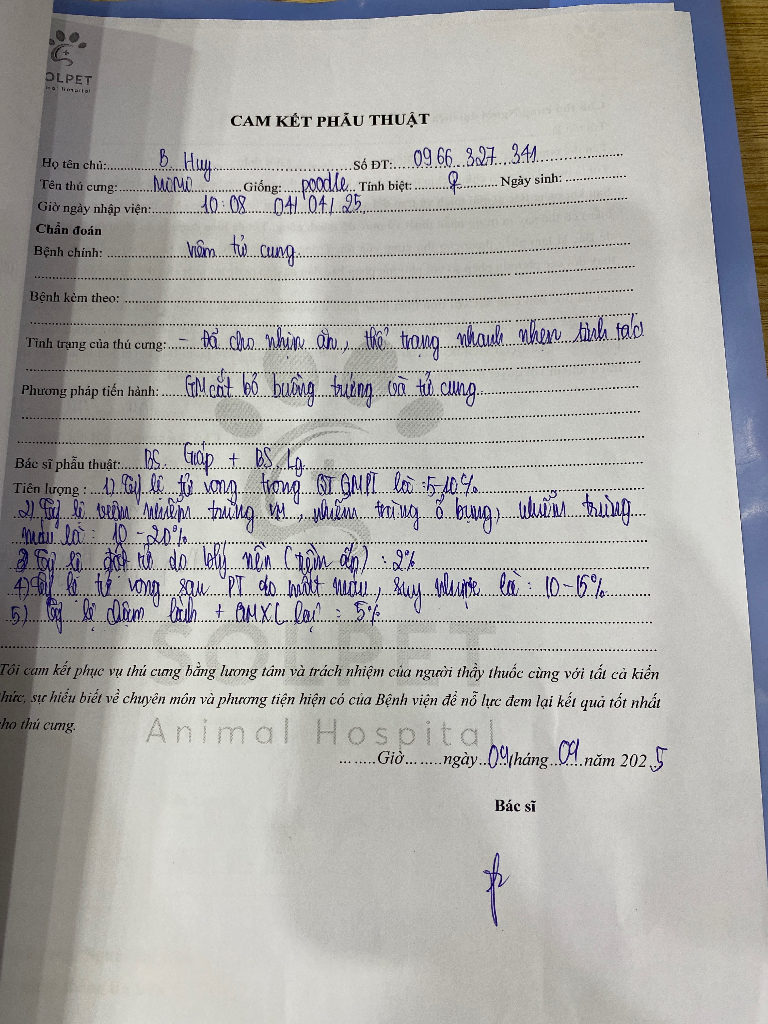 OLPET
mal Hospital
CAM KẾT PHẪU THUẬT
Họ tên chủ: B. Huy Số ĐT: 0966 327 341
Tên thú cưng: MOMO Giống: poodle Tính biệt: ♀ Ngày sinh:
Giờ ngày nhập viện: 10:08 04/04/25
Chẩn đoán
Bệnh chính: viêm tử cung
Bệnh kèm theo:
Tình trạng của thú cưng: - Đã cho nhịn ăn, thể trạng nhanh nhẹn tỉnh táo
Phương pháp tiến hành: GM cắt bỏ buồng trứng và tử cung
Bác sĩ phẫu thuật: BS. Giáp + BS. Lg.
Tiên lượng: 1) Tỷ lệ tử vong trong QT GMPT là: 5-10%
2) Tỷ lệ viêm nhiễm trùng VM, nhiễm trùng ổ bụng, nhiễm trùng
máu là: 10-20%
3) Tỷ lệ đột tử do blý nền (tiềm ẩn): 2%
4) Tỷ lệ tử vong sau PT do mất máu, suy nhược là: 10-15%
5) Tỷ lệ chậm lành + GMXL lại: 5%
SOLPET
Animal Hospital
Tôi cam kết phục vụ thú cưng bằng lương tâm và trách nhiệm của người thầy thuốc cùng với tất cả kiến
thức, sự hiểu biết về chuyên môn và phương tiện hiện có của Bệnh viện để nỗ lực đem lại kết quả tốt nhất
cho thú cưng.
........Giờ........ngày 04 tháng 04 năm 2025
Bác sĩ